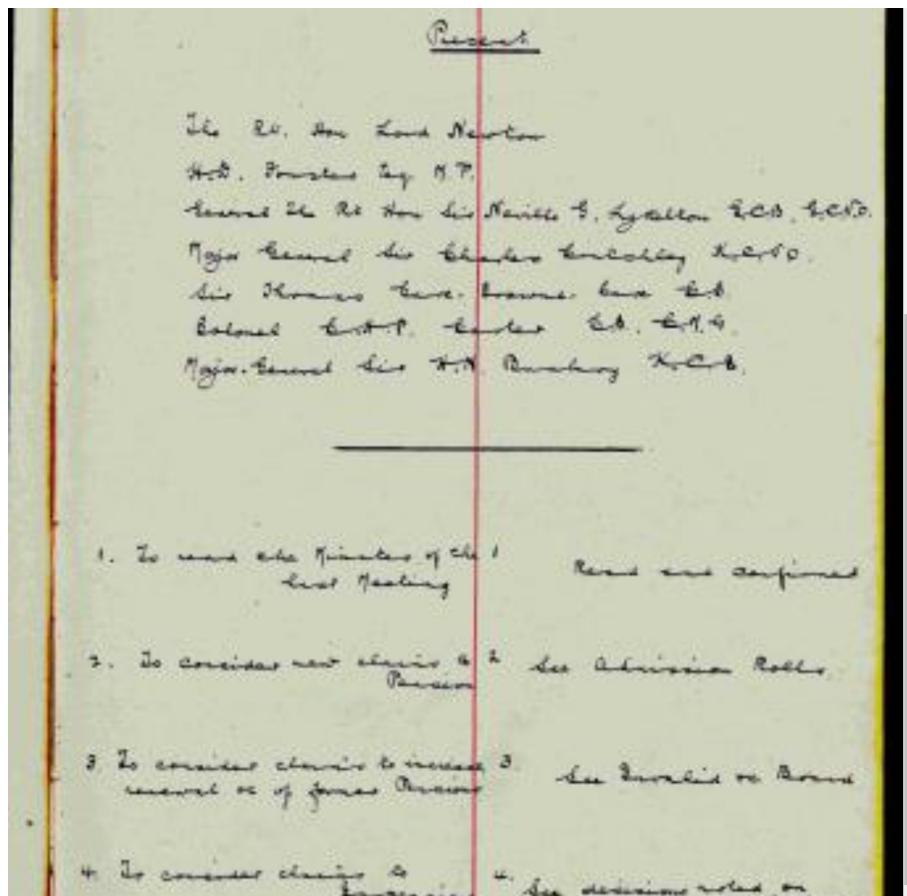 Present
The Rt. Hon Lord Newton
H.W. Forster Esq M.P.
General The Rt Hon Sir Neville G. Lyttelton G.C.B. G.C.V.O.
Major General Sir Charles K.C.V.O.
Sir Thomas C.B.
Colonel C.B. C.M.G.
Major-General Sir H.N. K.C.B.
1. To read the Minutes of the 1
last Meeting
Read and confirmed
2. To consider new claims to 2 See Admission Rolls
Pension
3. To consider claims to increase 3.
renewal &c of former Pensions
See Invalid &c Board
4. To consider claims to 4. See decisions noted on